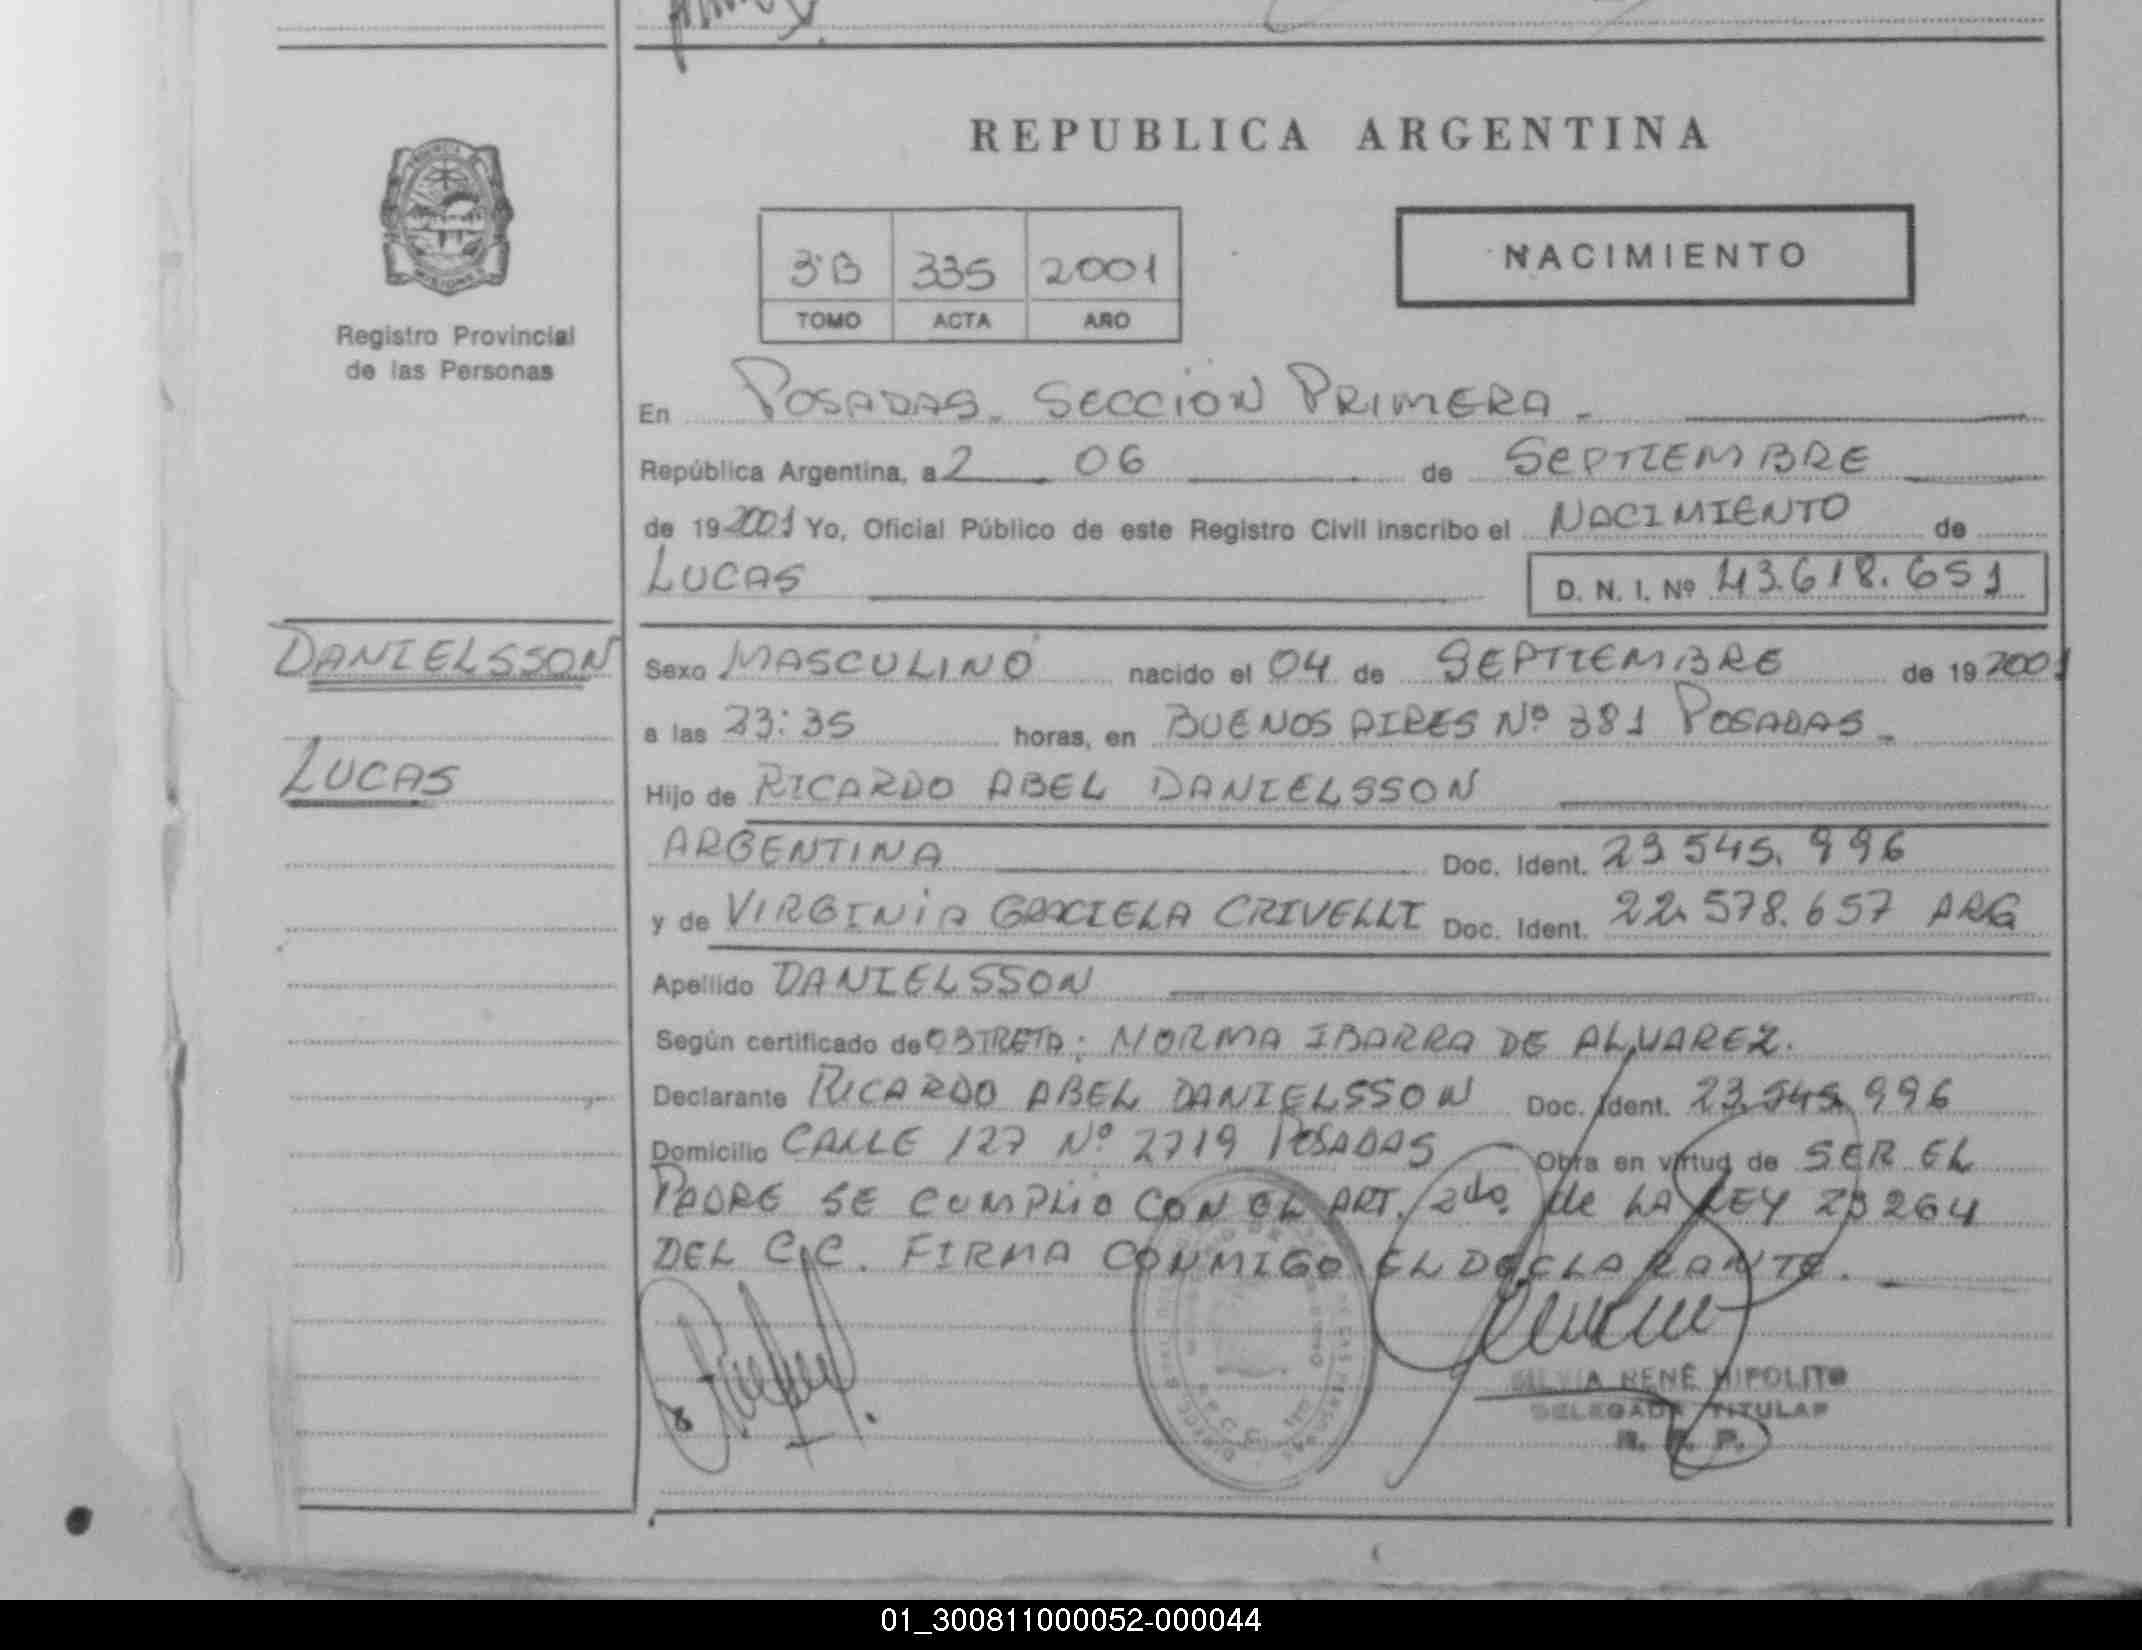 REPUBLICA ARGENTINA
Registro Provincial
de las Personas
3°B 335 2001
TOMO ACTA AÑO
NACIMIENTO
En POSADAS - SECCION PRIMERA -
República Argentina, a 2 06 de SEPTIEMBRE
de 19 2001 Yo, Oficial Público de este Registro Civil inscribo el NACIMIENTO de
LUCAS D. N. I. Nº 43.618.651
DANIELSSON
LUCAS
Sexo MASCULINO nacido el 04 de SEPTIEMBRE de 19 2001
a las 23:35 horas, en BUENOS AIRES Nº 381 POSADAS -
Hijo de RICARDO ABEL DANIELSSON
ARGENTINA Doc. Ident. 23.545.996
y de VIRGINIA GRACIELA CRIVELLI Doc. Ident. 22.578.657 ARG
Apellido DANIELSSON
Según certificado de OBTRETA: NORMA IBARRA DE ALVAREZ.
Declarante RICARDO ABEL DANIELSSON Doc. Ident. 23.545.996
Domicilio CALLE 127 Nº 2719 POSADAS Obra en virtud de SER EL
PADRE SE CUMPLIO CON EL ART. 2do. de LA LEY 23264
DEL C.C. FIRMA CONMIGO EL DECLARANTE.
SILVIA RENÉ HIPOLITO
DELEGADA TITULAR
R. P. P.
01_300811000052-000044